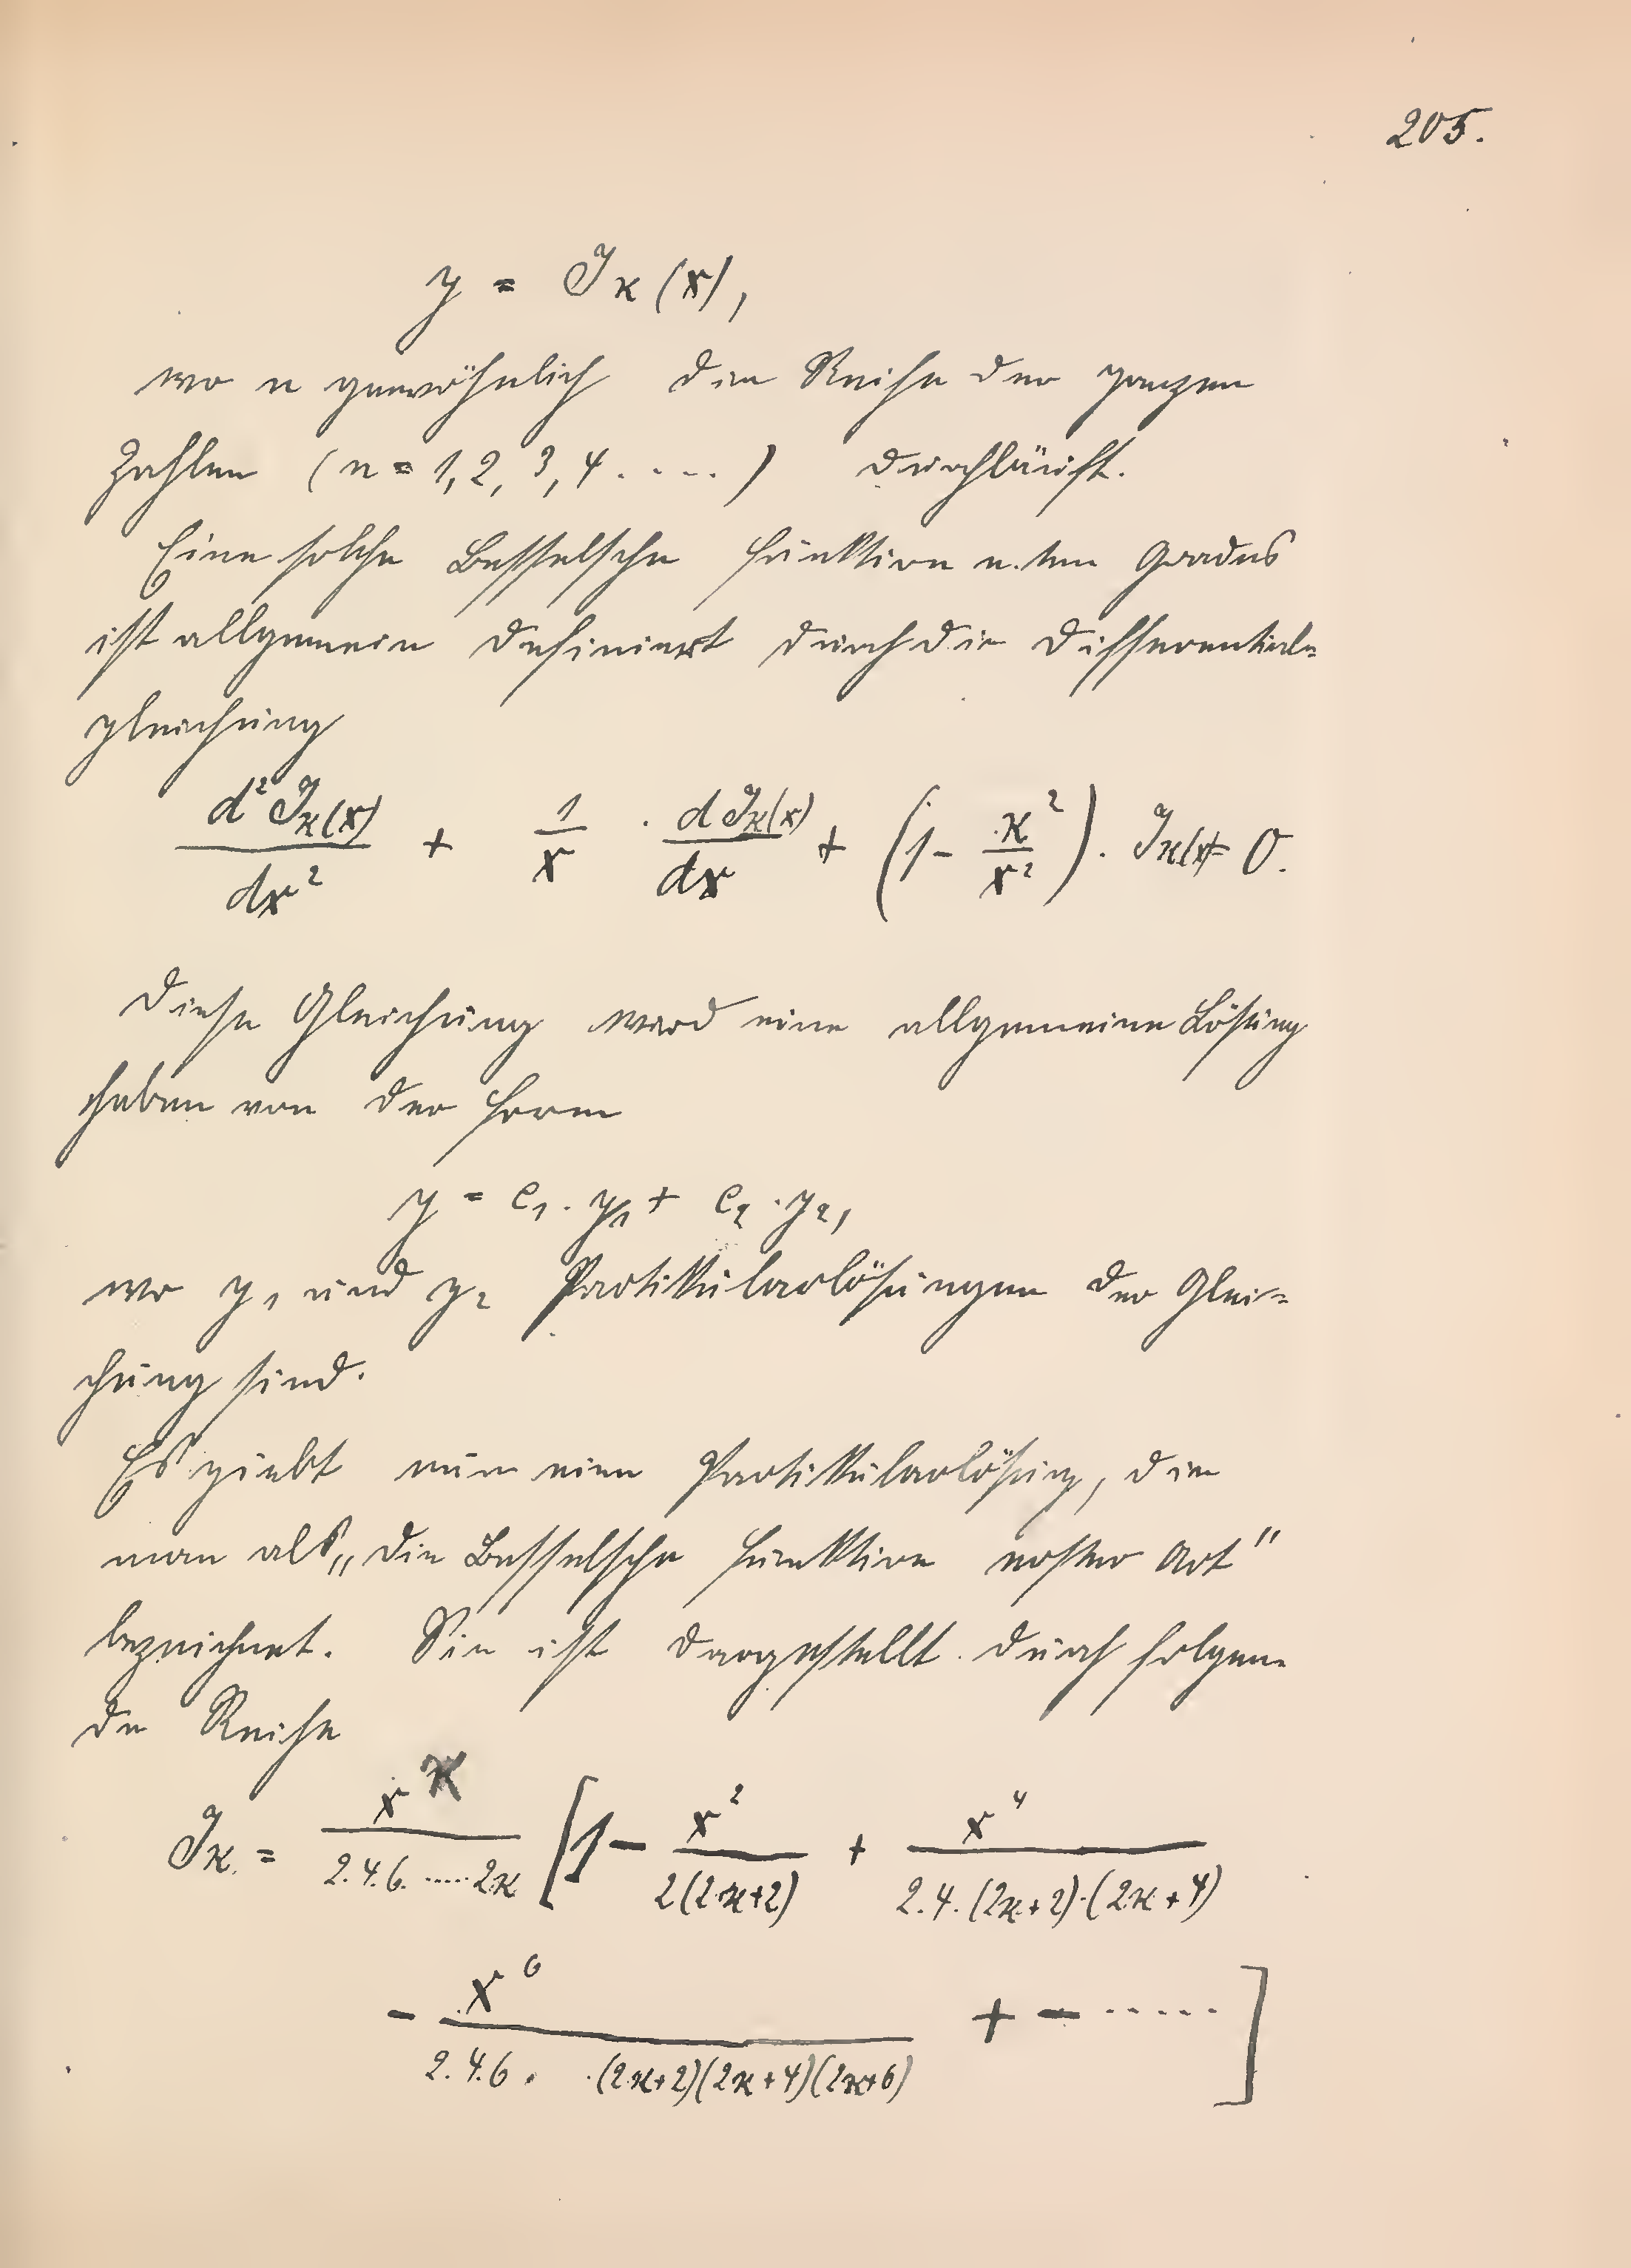 205.
y = J_κ(x),
wo n gewöhnlich die Reihe der ganzen
Zahlen (n = 1, 2, 3, 4 . . . . ) durchläuft.
Eine solche Besselsche Funktion n.ten Grades
ist allgemein definiert durch die Differential-
gleichung
d²J_κ(x)/dx² + 1/x · dJ_κ(x)/dx + (1 - κ²/x²) · J_κ(x) = 0.
Diese Gleichung wird eine allgemeine Lösung
haben von der Form
y = c₁ · y₁ + c₂ · y₂,
wo y₁ und y₂ Partikularlösungen der Glei-
chung sind.
Es giebt nun eine Partikularlösung, die
man als „die Besselsche Funktion erster Art"
bezeichnet. Sie ist dargestellt durch folgen-
de Reihe
J_κ = x^κ/2.4.6.·····2κ [1 - x²/2(2κ+2) + x⁴/2.4.(2κ+2)·(2κ+4)
- x⁶/2.4.6. (2κ+2)(2κ+4)(2κ+6) + - ······]